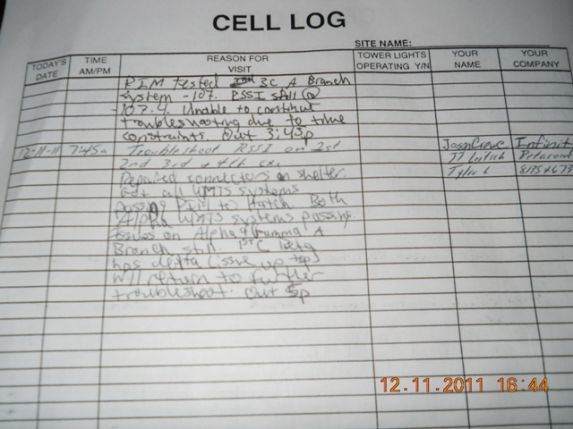 CELL LOG
SITE NAME:
TODAY'S DATE TIME AM/PM REASON FOR VISIT TOWER LIGHTS OPERATING Y/N YOUR NAME YOUR COMPANY
PIM tested 3C A Branch
System -107. RSSI still @
-107.4. Unable to continue
troubleshooting due to time
constraints. Out 3:45p
12-11-11 7:45a Troubleshoot RSSI on 2nd Infinit
2nd 3rd + 4th cx.
Repaired connectors in shelter. Tyler
Got all UMTS systems
passing PIM to Hatch. Both
Alpha UMTS systems passing.
Issues on Alpha + Gamma A
Branch still. 1st C Beta
has delta (issue up top)
will return to further
troubleshoot. Out 5p
12.11.2011 16:44